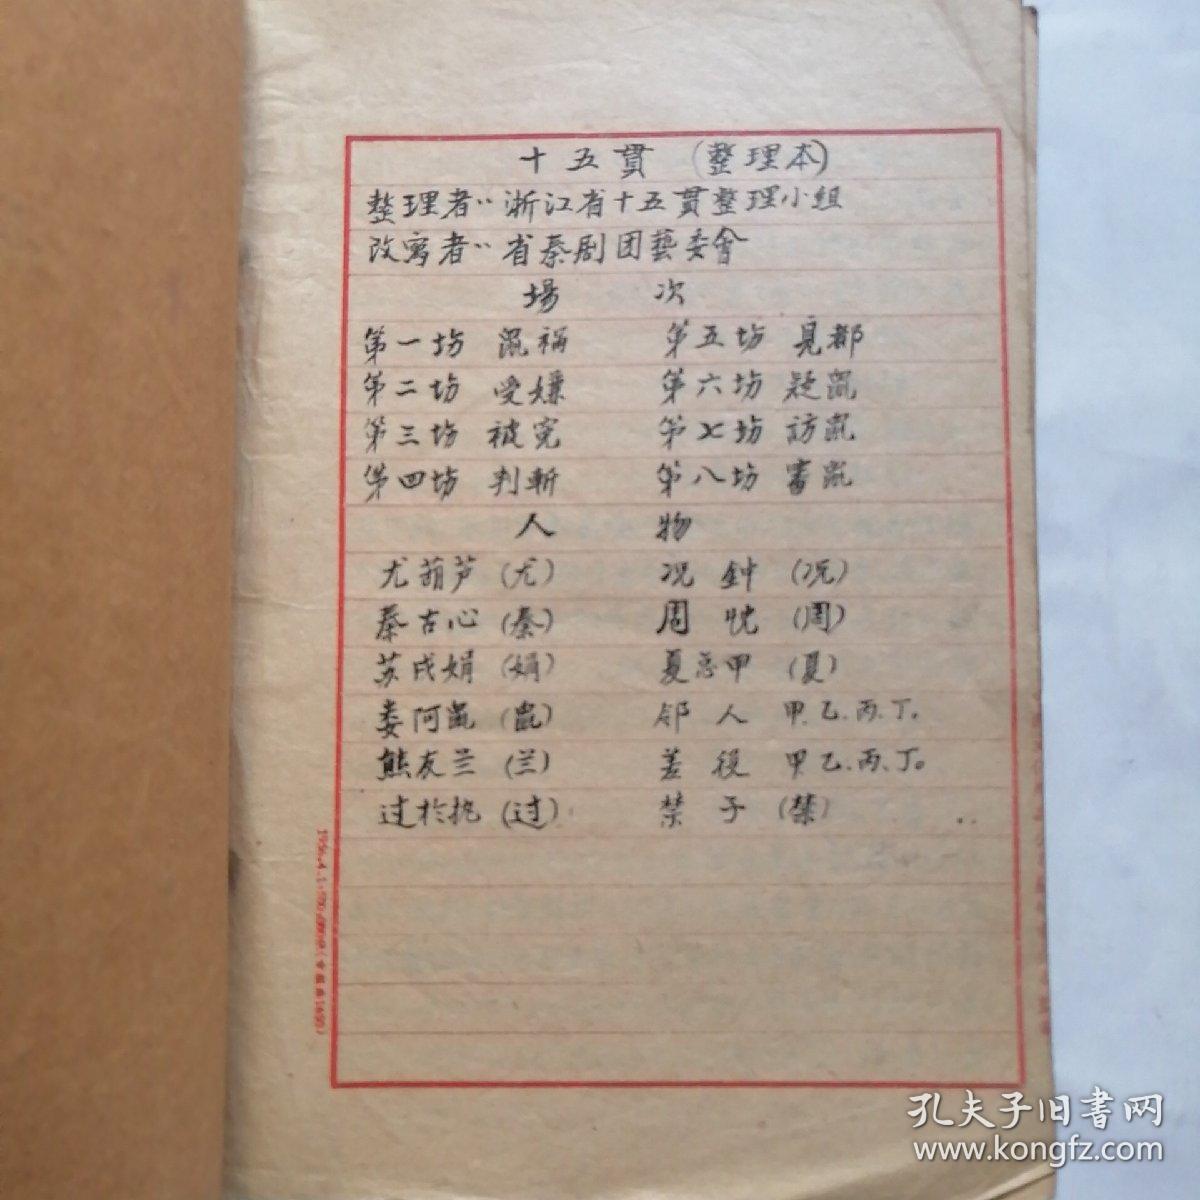 十五貫 (整理本)
整理者：浙江省十五貫整理小組
改寫者：省秦剧团藝委會
場 次
第一场 鼠禍 第五场 見都
第二场 受嫌 第六场 疑鼠
第三场 被冤 第七场 訪鼠
第四场 判斬 第八场 審鼠
人 物
尤葫芦 (尤) 况 鈡 (况)
秦古心 (秦) 周 忱 (周)
苏戌娟 (娟) 夏总甲 (夏)
娄阿鼠 (鼠) 邻 人 甲.乙.丙.丁。
熊友兰 (兰) 差 役 甲.乙.丙.丁。
过於执 (过) 禁 子 (禁)
1956.4.1
孔夫子旧書网
www.kongfz.com